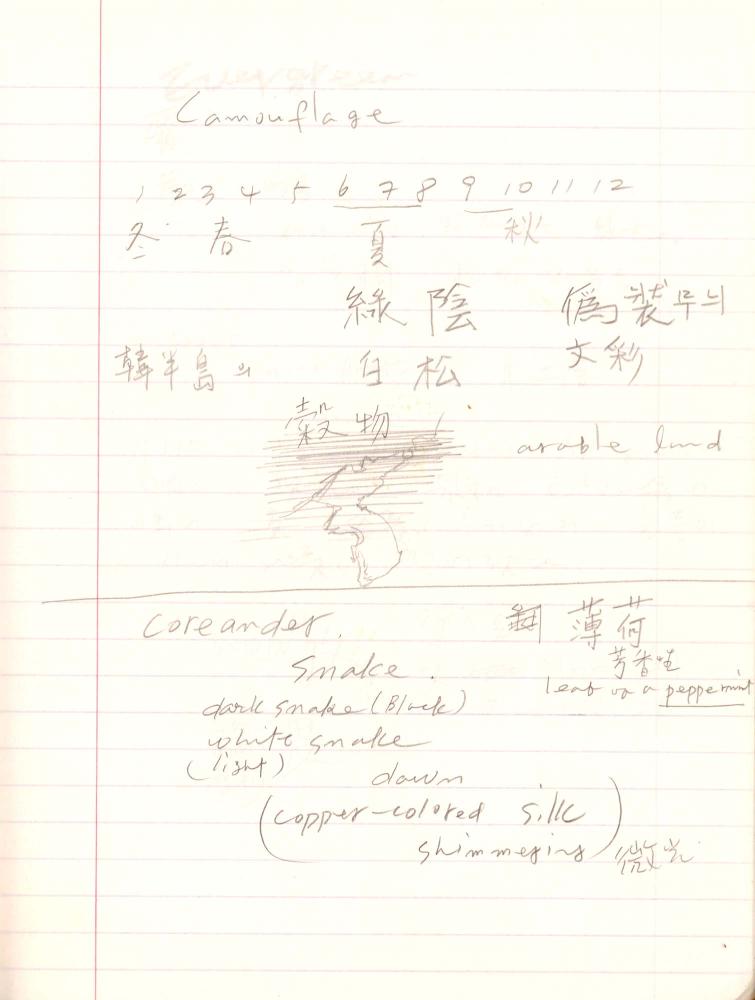 Camouflage
1 2 3 4 5 6 7 8 9 10 11 12
冬 春 夏 秋
綠陰 僞裝무늬
韓半島의 白松 文彩
穀物
arable land
coreander. 薄荷
snake. 芳香性
leaf of a peppermint
dark snake (Black)
white snake
(light)
dawn
(copper-colored silk
shimmering) 微光